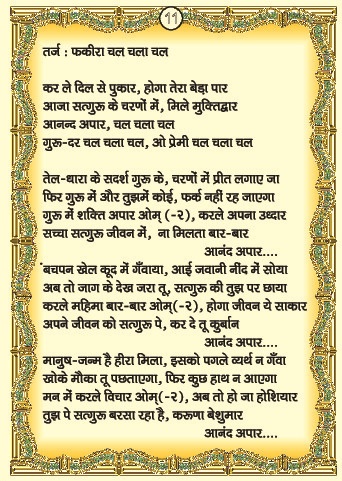 11
तर्ज : फकीरा चल चला चल
कर ले दिल से पुकार, होगा तेरा बेड़ा पार
आजा सत्गुरु के चरणों में, मिले मुक्तिद्वार
आनन्द अपार, चल चला चल
गुरू-दर चल चला चल, ओ प्रेमी चल चला चल
तेल-धारा के सदर्श गुरू के, चरणों में प्रीत लगाए जा
फिर गुरू में और तुझमें कोई, फर्क नहीं रह जाएगा
गुरू में शक्ति अपार ओम् (-२), करले अपना उध्दार
सच्चा सत्गुरू जीवन में, ना मिलता बार-बार
आनंद अपार....
बचपन खेल कूद में गँवाया, आई जवानी नींद में सोया
अब तो जाग के देख जरा तू, सत्गुरू की तुझ पर छाया
करले महिमा बार-बार ओम्(-२), होगा जीवन ये साकार
अपने जीवन को सत्गुरू पे, कर दे तू कुर्बान
आनंद अपार....
मानुष-जन्म है हीरा मिला, इसको पगले व्यर्थ न गँवा
खोके मौका तू पछताएगा, फिर कुछ हाथ न आएगा
मन में करले विचार ओम्(-२), अब तो हो जा होशियार
तुझ पे सत्गुरू बरसा रहा है, करूणा बेशुमार
आनंद अपार....